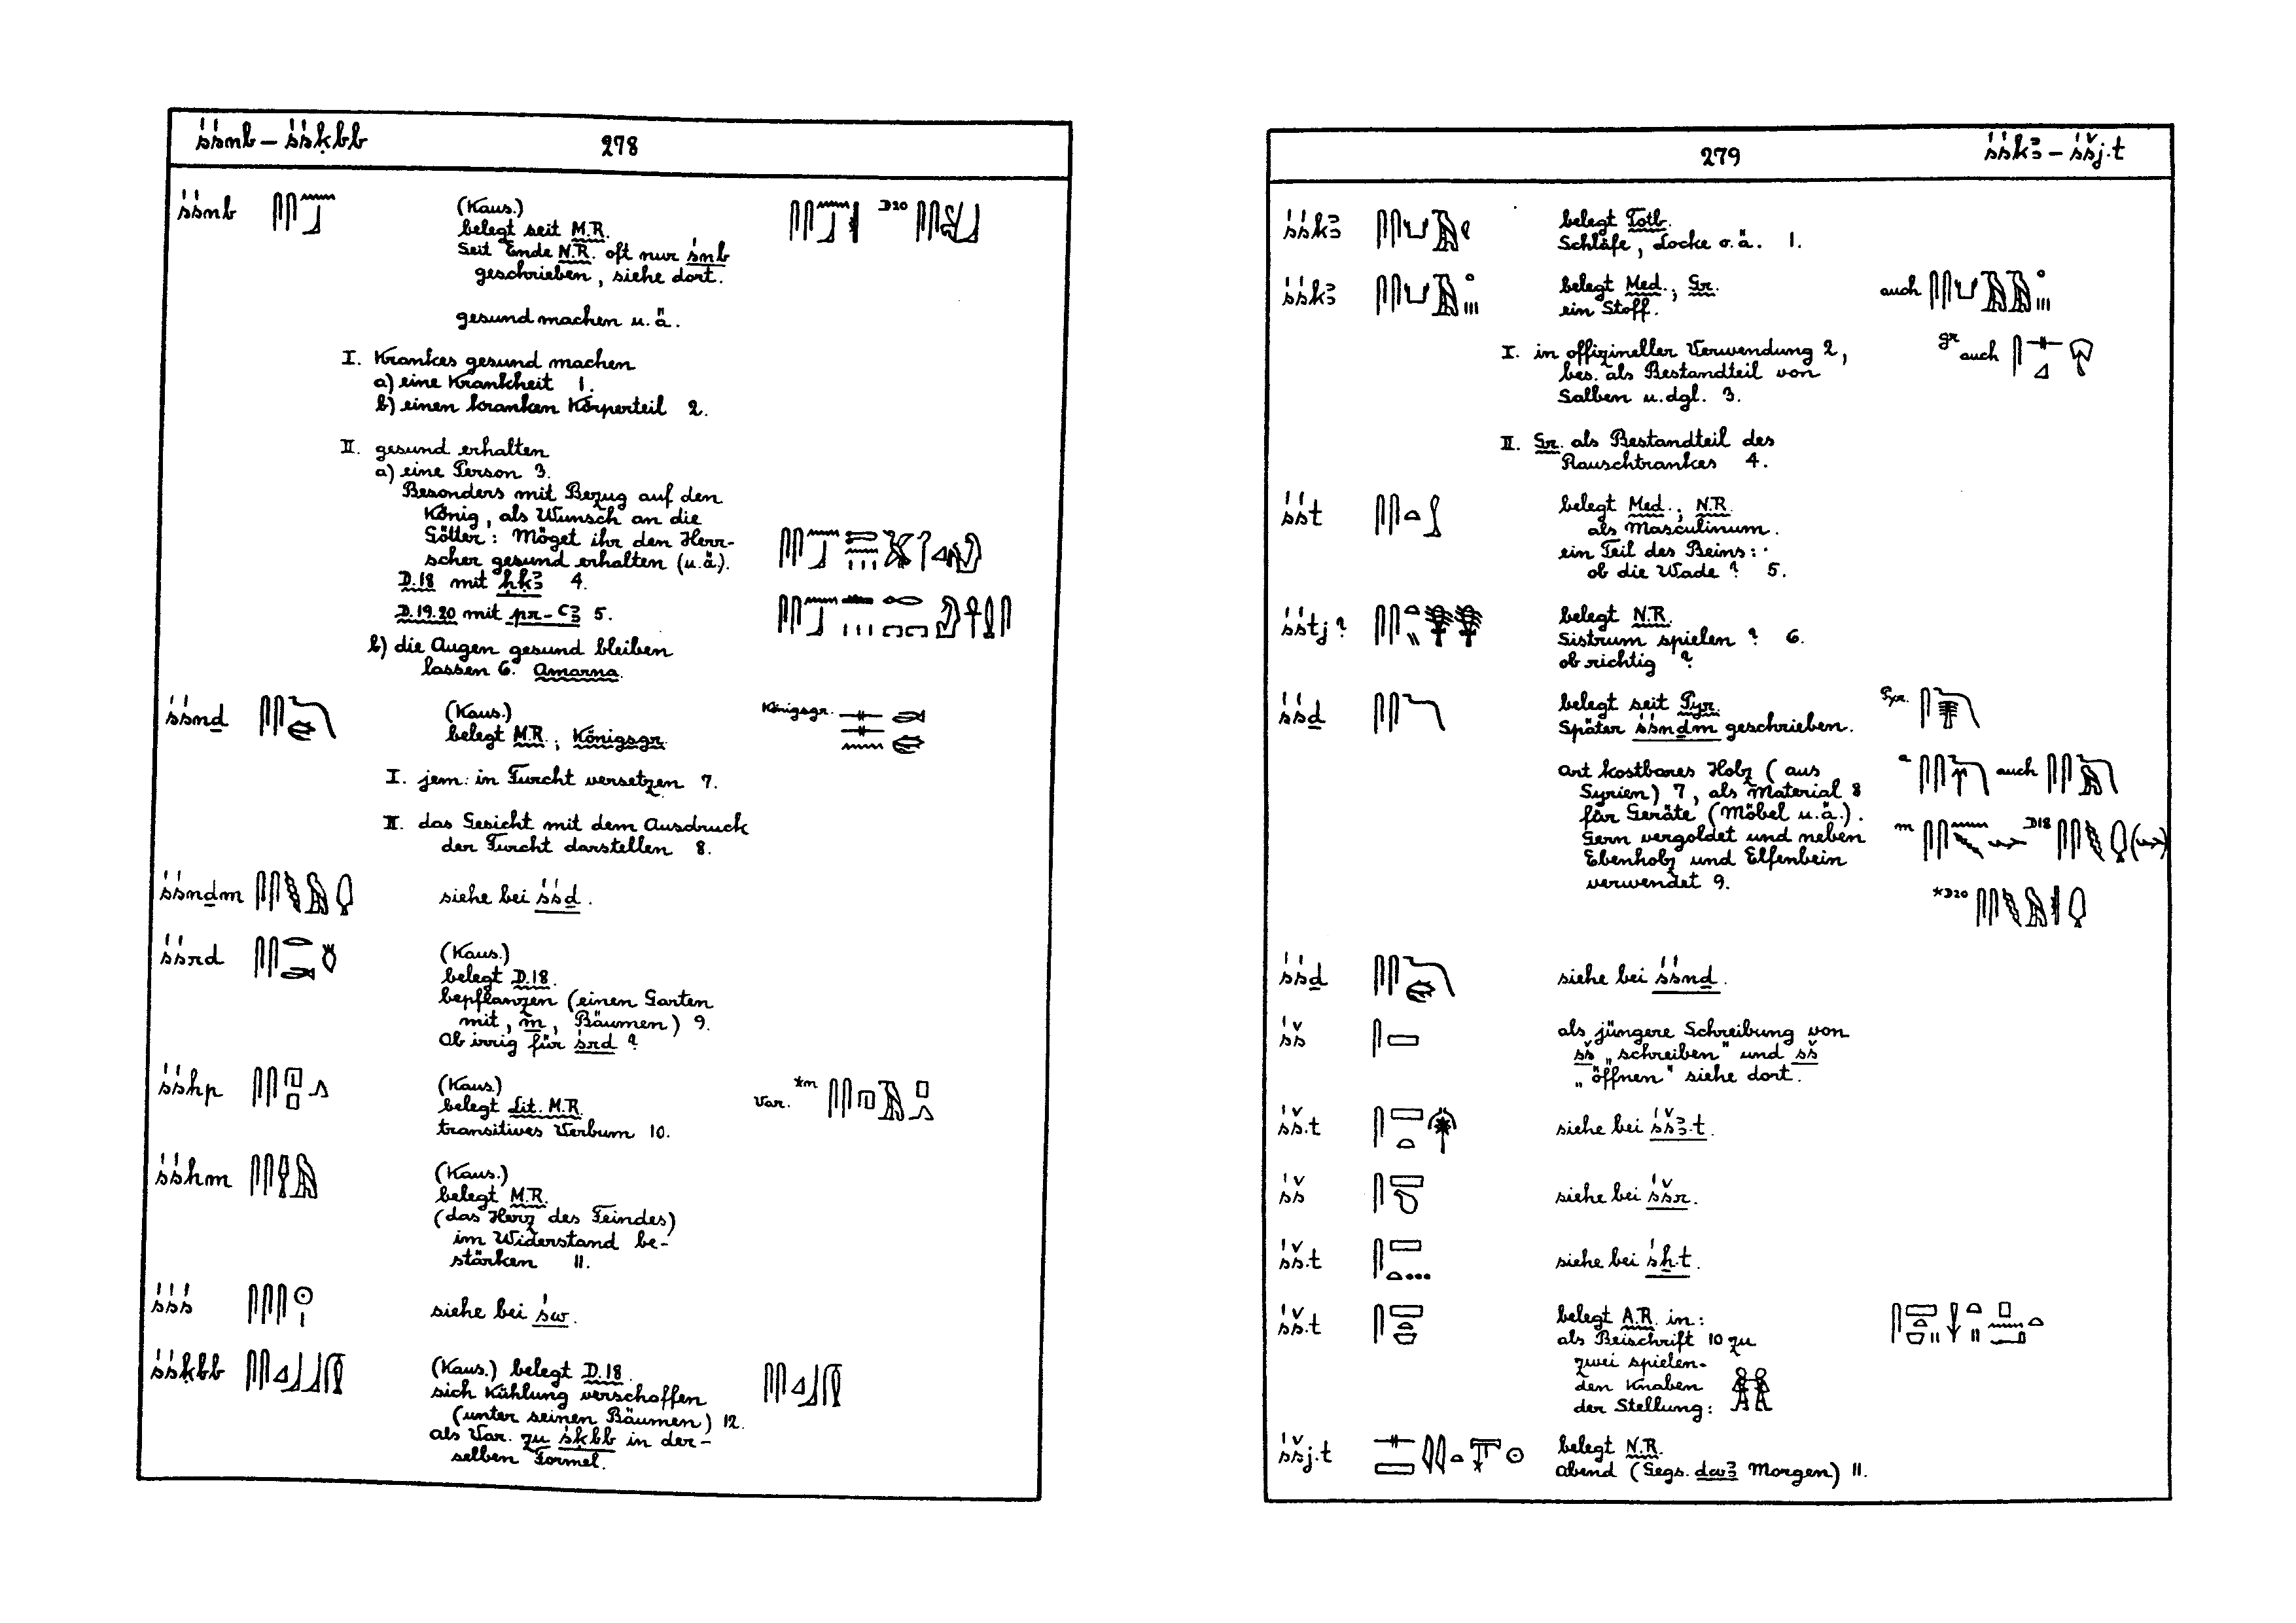 śśnb – śśḳbb 278
śśnb (Kaus.)
belegt seit M.R. D20
Seit Ende N.R. oft nur śnb
geschrieben, siehe dort.
gesund machen u.ä.
I. Krankes gesund machen
a) eine Krankheit 1.
b) einen kranken Körperteil 2.
II. gesund erhalten
a) eine Person 3.
Besonders mit Bezug auf den
König, als Wunsch an die
Götter: Möget ihr den Herr-
scher gesund erhalten (u.ä.).
D.18 mit ḥḳꜣ 4.
D.19.20 mit pr-ꜥꜣ 5.
b) die Augen gesund bleiben
lassen 6. Amarna.
śśnḏ (Kaus.) Königsgr.
belegt M.R.; Königsgr.
I. jem: in Furcht versetzen 7.
II. das Gesicht mit dem Ausdruck
der Furcht darstellen 8.
śśnḏm siehe bei śśḏ.
śśrd (Kaus.)
belegt D.18.
bepflanzen (einen Garten
mit, m, Bäumen) 9.
Ob irrig für śrd?
śśhp (Kaus.) Var. *m
belegt Lit. M.R.
transitives Verbum 10.
śśhm (Kaus.)
belegt M.R.
(das Herz des Feindes)
im Widerstand be-
stärken 11.
śśś siehe bei św.
śśḳbb (Kaus.) belegt D.18.
sich Kühlung verschaffen
(unter seinen Bäumen) 12.
als Var. zu śḳbb in der-
selben Formel.
279 śśkꜣ – śšj.t
śśkꜣ belegt Totb.
Schläfe, Locke o.ä. 1.
śśkꜣ belegt Med.; Gr. auch
ein Stoff.
I. in offizineller Verwendung 2, gr auch
bes. als Bestandteil von
Salben u.dgl. 3.
II. Gr. als Bestandteil des
Rauschtrankes 4.
śśt belegt Med.; N.R.
als Masculinum.
ein Teil des Beins:
ob die Wade? 5.
śśtj? belegt N.R.
Sistrum spielen? 6.
ob richtig?
śśḏ belegt seit Pyr. Pyr.
Später śśnḏm geschrieben.
Art kostbares Holz (aus a auch
Syrien) 7, als Material 8
für Geräte (Möbel u.ä.).
Gern vergoldet und neben m D18
Ebenholz und Elfenbein
verwendet 9. *D20
śśḏ siehe bei śśnḏ.
śš als jüngere Schreibung von
sš „schreiben" und sš
„öffnen" siehe dort.
śš.t siehe bei śšꜣ.t.
śš siehe bei śšr.
śš.t siehe bei śẖ.t.
śš.t belegt A.R. in:
als Beischrift 10 zu
zwei spielen-
den Knaben
der Stellung:
śšj.t belegt N.R.
Abend (Gegs. dwꜣ Morgen) 11.